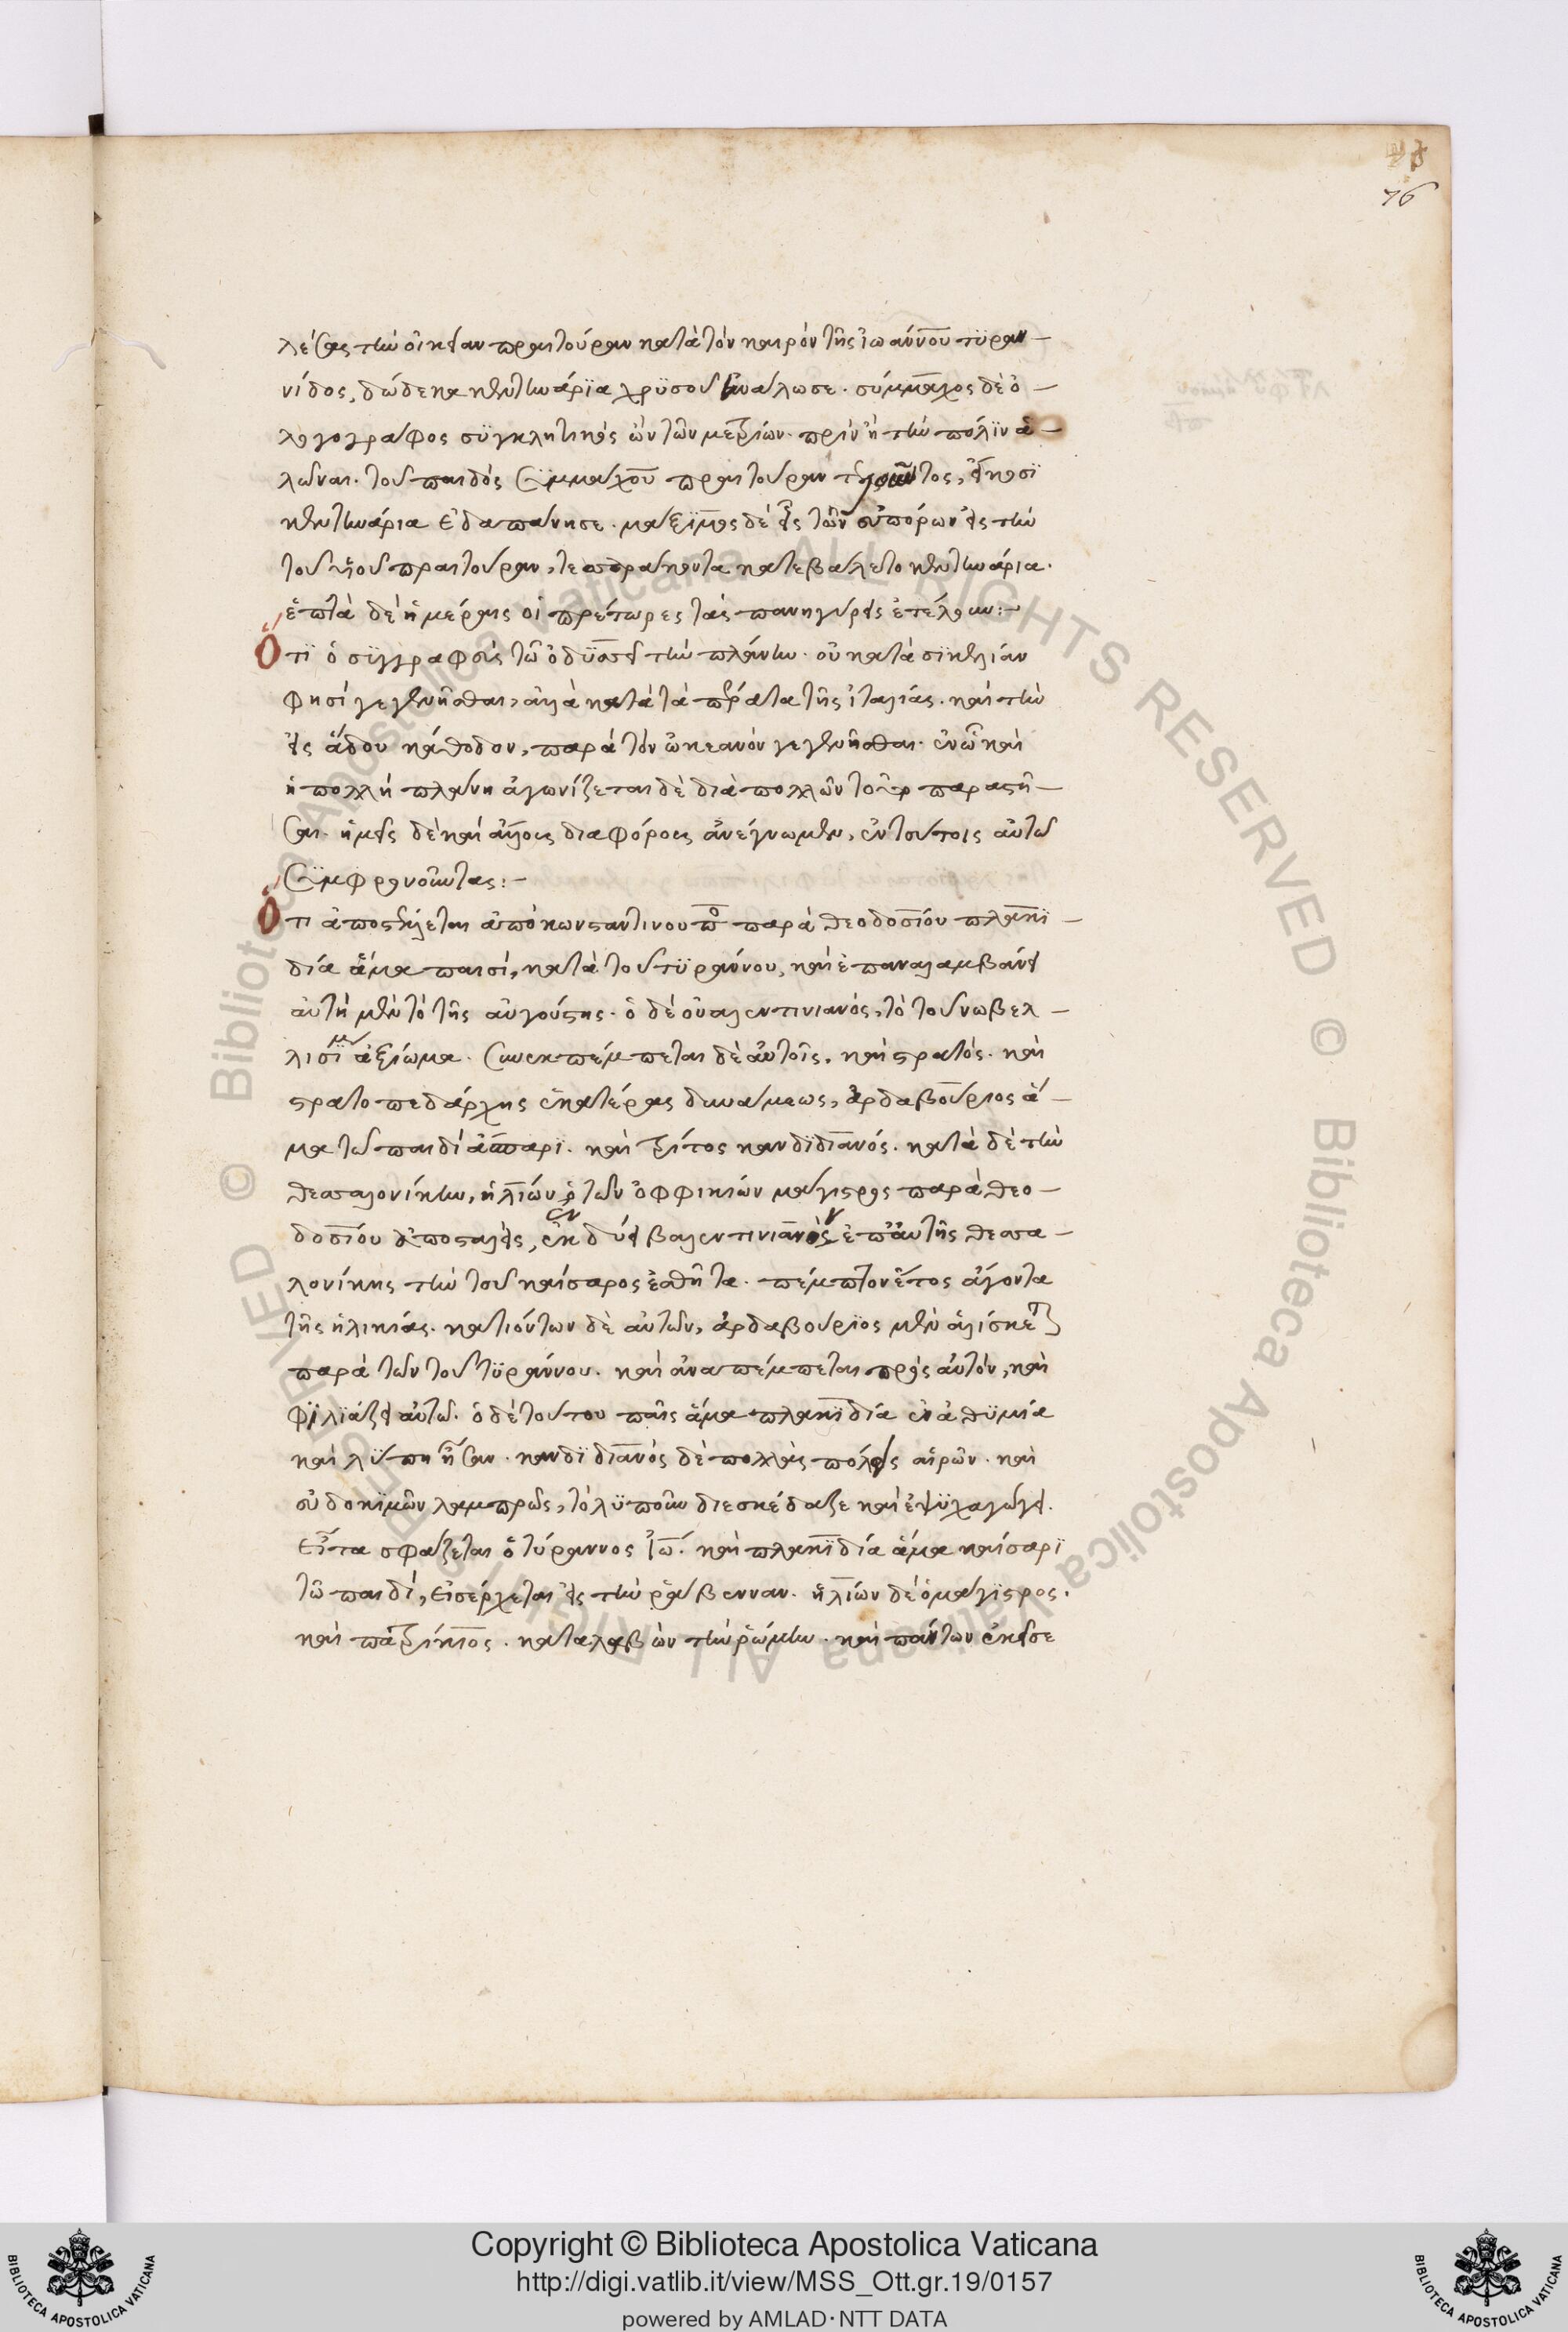 76
λέσας τὴν οἰκείαν πραιτούραν κατὰ τὸν καιρὸν τῆς ἰωάννου τϋραν-
νίδος, δώδεκα κεντηνάρϊα χρϋσοῦ ἀνάλωσε. σύμμαχος δὲ ὁ-
λογογράφος σϋγκλητικὸς ὢν τῶν μετρίων. πρὶν ἢ τὴν πόλϊν ἁ-
λῶναι. τοῦ παιδὸς σϋμμάχου πραιτούραν τελοῦντος, εἴκοσϊ
κεντηνάρια ἐδαπάνησε. μάξϊμος δὲ εἷς τῶν εὐπόρων εἰς τὴν
τοῦ υἱοῦ πραιτούραν, τεσσαράκοντα κατεβάλετο κεντηνάρια.
ἑπτὰ δὲ ἡμέραις οἱ πραίτωρες τὰς πανηγύρεις ἐτέλουν:-
Ὅτϊ ὁ σϋγγραφεὺς τῶ ὀδϋσσεῖ τὴν πλάνην. οὐ κατὰ σϊκελίαν
φησὶ γεγενῆσθαι, ἀλλὰ κατὰ τὰ πέρατα τῆς ἰταλίας. καὶ τὴν
εἰς ἅδου κάθοδον, παρὰ τὸν ὠκεανὸν γεγενῆσθαι. ἐν ὧ καὶ
ἡ πολλὴ πλάνη ἀγωνίζεται δὲ διὰ πολλῶν τοῦτο παραστῆ-
σαι. ἡμεῖς δὲ καὶ ἄλλους διαφόρους ἀνέγνωμεν, ἐν τούτοις αὐτῶ
σϋμφρονοῦντας:-
Ὅτι ἀποστέλλεται ἀπὸ κωνσταντινουπό παρὰ θεοδοσίου πλακϊ-
δία ἅμα παισὶ, κατὰ τοῦ τϋράννου, καὶ ἐπαναλαμβάνει
αὐτὴ μὲν τὸ τῆς αὐγούστης. ὁ δὲ οὐαλεντινιανὸς, τὸ τοῦ νωβελ-
λισϊμ ἀξίωμα. συνεκπέμπεται δὲ αὐτοῖς. καὶ στρατός. καὶ
στρατοπεδάρχης ἑκατέρας δυνάμεως, ἀρδαβούριος ἅ-
μα τῶ παιδὶ ἄσπαρϊ. καὶ τρίτος κανδϊδιανός. κατὰ δὲ τὴν
θεσσαλονίκην, ἡλίων ὁ τῶν ὀφφικίων μάγιστρος παρὰ θεο-
δοσίου ἀποσταλεὶς, ἐνδύει βαλεντινιανὸν ἐπ' αὐτῆς θεσσα-
λονίκης τὴν τοῦ καίσαρος ἐσθῆτα. πέμπτον ἔτος ἄγοντα
τῆς ἡλικίας. κατιόντων δὲ αὐτῶν, ἀρδαβούρϊος μὲν ἁλίσκετ
παρὰ τῶν τοῦ τϋράννου. καὶ ἀναπέμπεται πρὸς αὐτὸν, καὶ
φϊλϊάζει αὐτῶ. ὁ δὲ τούτου παῖς ἅμα πλακϊδία ἐν ἀθϋμία
καὶ λύπη ἦσαν. κανδϊδιανὸς δὲ πολλὰς πόλεις αἱρῶν. καὶ
εὐδοκϊμῶν λαμπρῶς, τὸ λϋποῦν διεσκέδαζε καὶ ἐψϋχαγώγει.
Εἶτα σφάζεται ὁ τύραννος ἰω. καὶ πλακϊδία ἅμα καίσαρϊ
τῶ παιδὶ, εἰσέρχεται εἰς τὴν ῥάβενναν. ἡλίων δὲ ὁ μάγϊστρος.
καὶ πατρίκιος. καταλαβὼν τὴν ῥώμην. καὶ πάντων ἐκεῖσε
Copyright © Biblioteca Apostolica Vaticana
http://digi.vatlib.it/view/MSS_Ott.gr.19/0157
powered by AMLAD·NTT DATA